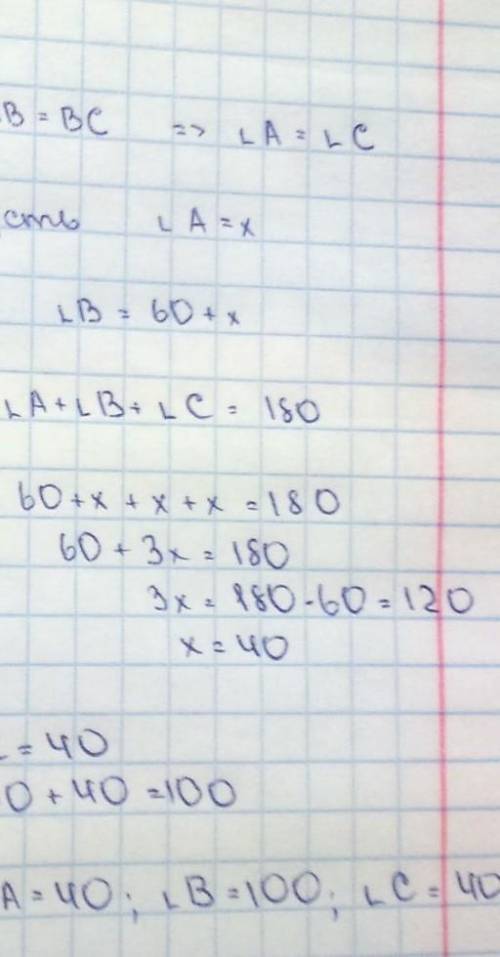 B = BC => ∠A = ∠C
сть ∠A = x
∠B = 60 + x
∠A + ∠B + ∠C = 180
60 + x + x + x = 180
60 + 3x = 180
3x = 180 - 60 = 120
x = 40
= 40
0 + 40 = 100
A = 40; ∠B = 100; ∠C = 40